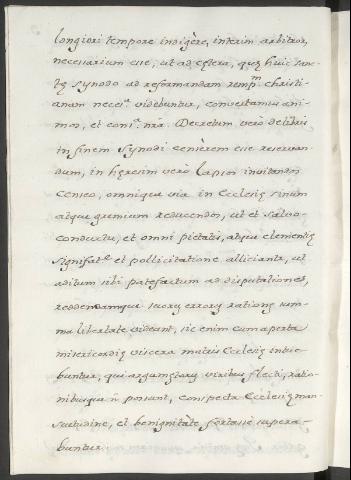 longiori tempore indigère, interim arbitror,
necessarium esse, ut ad cętera, quę huic sanc-
tę synodo ad reformandam remp.^m christi-
anam necess.^a videbuntur, convertamus ani-
mos, et cons.^a n̄ra. Decretum verò de libris
in finem synodi censerem esse reservan-
dum, in hęresim verò lapsos invitandos
censeo, omnique via in Ecclesię sinum
atque gremium reducendos, ut et salvo-
conductu, et omni pietatis, atque clementię
significat.^e et pollicitatione alliciantur, ut
aditum sibi patefactum ad disputationes,
reddendamque suorũ errorũ rationẽ sum-
ma libertate videant, sic enim cum aperta
misericordię viscera matris Ecclesię intue-
buntur, qui argumẽtorũ viribus flecti, ratio-
nibusque ñ possunt, conspecta Ecclesię man-
suetudine, et benignitate fortasse supera-
buntur.